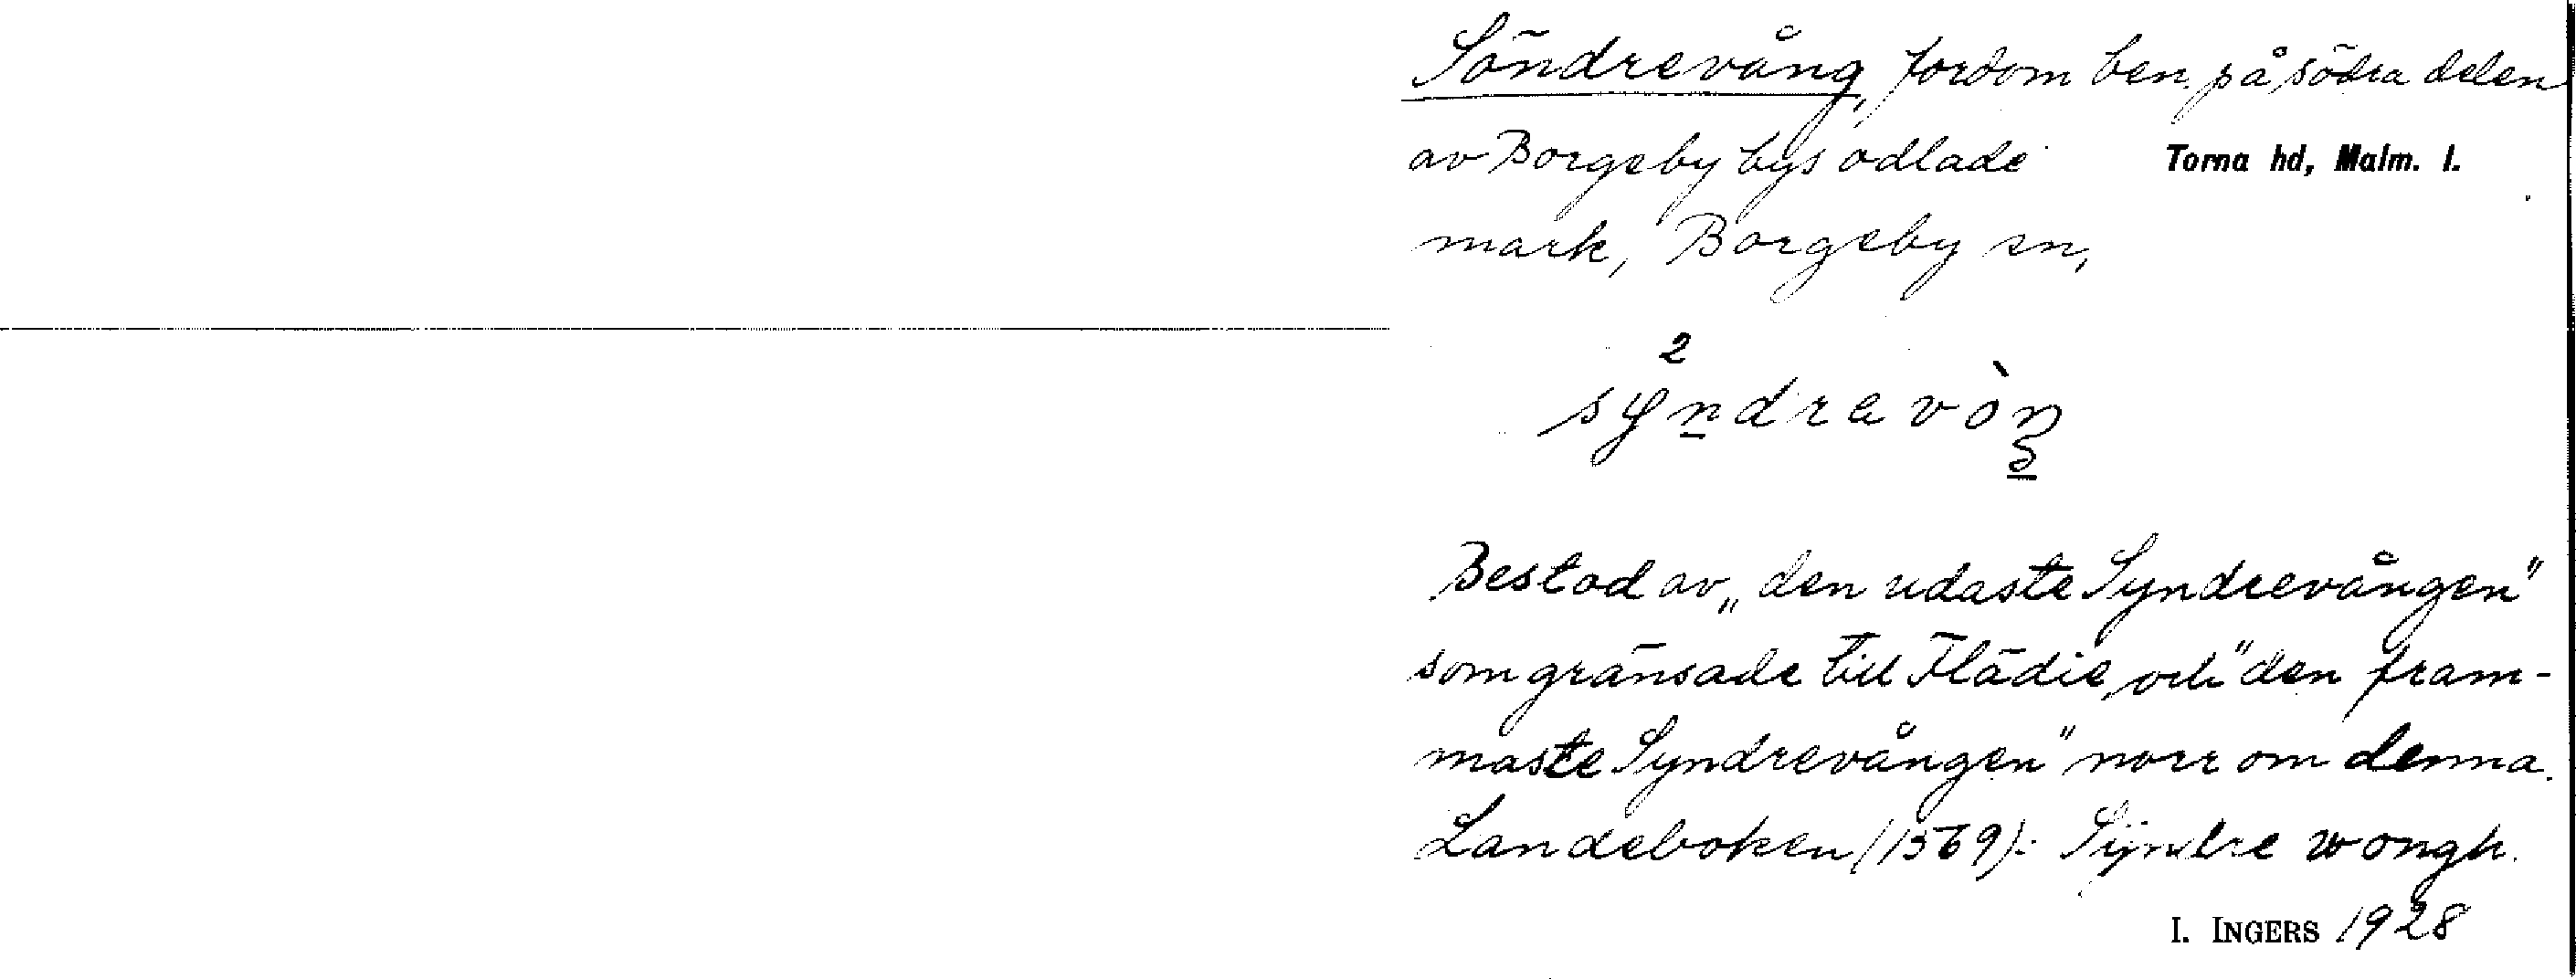 Söndrevång, fordom ben. på södra delen
av Borgeby bys odlade Torna hd, Malm. l.
mark, Borgeby sn,
Bestod av „den udaste Syndrevången"
som gränsade till Flädie, och "den fram-
maste Syndrevången" norr om denna.
Landeboken (1569): Sÿndre wongh.
I. INGERS 1928